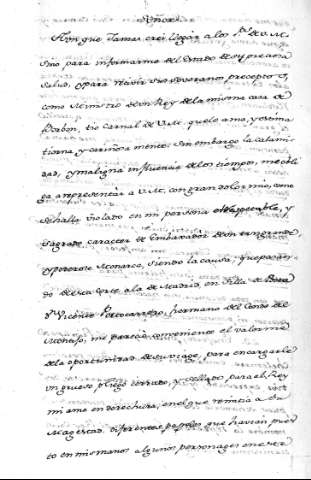 Señor
Aun que Jamas crei llegar a los P.s de V.M.
sino para informarme del Estado de su preciosa
Salud, o para recivir sus soveranos preceptos,
como Ministro de un Rey de la misma casa de
Borbon, tio Carnal de V.M. que le ama, y estima
tierna y cariñosamente. Sin embargo la calami
dad, y maligna influencia de los tiempos, me obli
ga a representar a V.M. con gran dolor mio, como
se halla violado en mi persona el respectable, y
Sagrado caracter de Embaxador de un tan grande
y poderoso Monarca, siendo la causa, que pasan
do de esta Corte a la de Madrid, en Silla de Posta
D.n Vicente hermano del Conde del
me parecio conveniente el valerme
de la oportunidad de su viage, para encargarle
un grueso pliego cerrado, y sellado para el Rey
mi amo en derechura, en el que remitia a Su
Magestad diferentes papeles que havian pues
to en mis manos algunos personages en secre
to